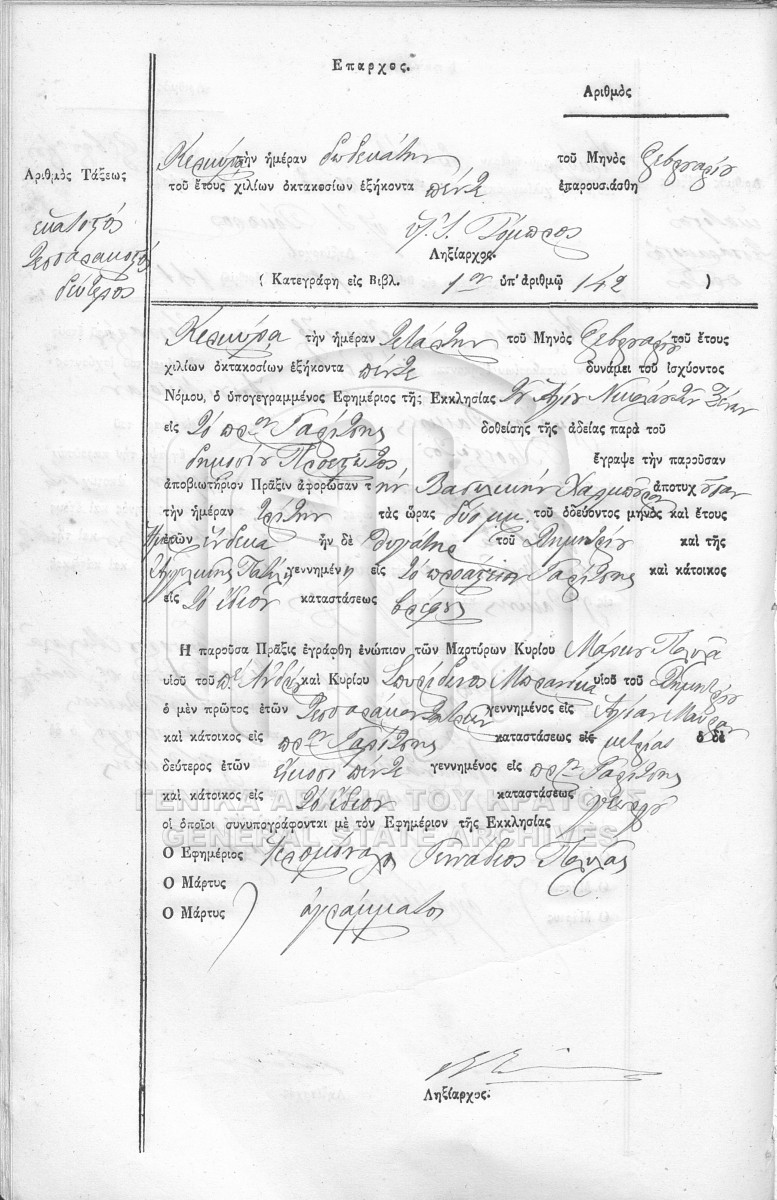 Επαρχος.
Αριθμὸς
Αριθμὸς Τάξεως
εκατοστός
τεσσαρακοστός
δεύτερος
Κερκύρα τὴν ἡμέραν δωδεκάτην τοῦ Μηνὸς Φεβρουαρίου
τοῦ ἔτους χιλίων ὀκτακοσίων ἐξήκοντα πέντε ἐπαρουσιάσθη
Ληξίαρχος.
( Κατεγράφη εἰς Βιβλ. 1ον ὑπ' ἀριθμῷ 142 )
Κερκύρα τὴν ἡμέραν τετάρτην τοῦ Μηνὸς Φεβρουαρίου τοῦ ἔτους
χιλίων ὀκτακοσίων ἐξήκοντα πέντε δυνάμει τοῦ ἰσχύοντος
Νόμου, ὁ ὑπογεγραμμένος Εφημέριος τῆς Εκκλησίας του Αγίου Νικολάου των Ξένων
εἰς το πρ.ον Γαρίτσης δοθείσης τῆς ἀδείας παρὰ τοῦ
δημοσίου Προεστώτος ἔγραψε τὴν παροῦσαν
ἀποβιωτήριον Πρᾶξιν ἀφορῶσαν τὴν Βασιλικήν ἀποτυχοῦσαν
τὴν ἡμέραν τρίτην τὰς ὥρας δύο μ.μ. τοῦ ὁδεύοντος μηνὸς καὶ ἔτους
ἐτῶν ένδεκα ἦν δὲ θυγάτηρ τοῦ Δημητρίου καὶ τῆς
Αγγελικής γεννημένη εἰς το προάστειον Γαρίτσης καὶ κάτοικος
εἰς το ίδιον καταστάσεως βρέφος
Η παροῦσα Πρᾶξις ἐγράφθη ἐνώπιον τῶν Μαρτύρων Κυρίου Μάρκου Παυλά
υἱοῦ τοῦ π.τε Ανδρέα καὶ Κυρίου Σπυρίδωνος υἱοῦ τοῦ Δημητρίου
ὁ μὲν πρῶτος ἐτῶν τεσσαράκοντα γεννημένος εἰς Αγίαν Μαύραν
καὶ κάτοικος εἰς πρ.ον Γαρίτσης καταστάσεως εἰς μετρίας ὁ δὲ
δεύτερος ἐτῶν είκοσι πέντε γεννημένος εἰς πρ.ον Γαρίτσης
καὶ κάτοικος εἰς το ίδιον καταστάσεως γεωργού
οἱ ὁποῖοι συνυπογράφονται μὲ τὸν Εφημέριον τῆς Εκκλησίας
Ο Εφημέριος Ιερομόναχος Γεννάδιος Παυλάς
Ο Μάρτυς
Ο Μάρτυς αγράμματοι
Ληξίαρχος.
ΓΕΝΙΚΑ ΑΡΧΕΙΑ ΤΟΥ ΚΡΑΤΟΥΣ
GENERAL STATE ARCHIVES